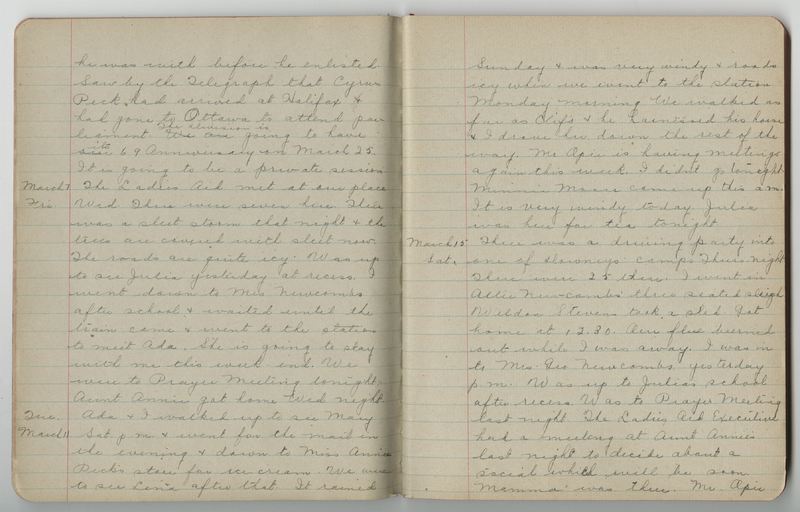 he was with before he enlisted.
Saw by the Telegraph that Cyrus
Peck had arrived at Halifax &
had gone to Ottawa to attend par
The division is
leament. We are going to have
its 69 Anniversary on March 25.
It is going to be a private session
March 7 The Ladies Aid met at our place
Fri. Wed. There were seven here. There
was a sleet storm that night & the
trees are covered with sleet now.
The roads are quite icy. Was up
to see Julia yesterday at recess. I
went down to Mrs Newcombs
after school & waited until the
train came & went to the station
to meet Ada. She is going to stay
with me this week end. We
were to Prayer Meeting tonight.
Aunt Annie got home Wed night
Tue. Ada & I walked up to see Mary
March 11 Sat p.m. & went for the mail in
the evening & down to Miss Annie
Peck's store for ice cream. We were
to see Lena after that. It rained
Sunday & was very windy & roads
icy when we went to the station
Monday morning. We walked as
far as Clif's & he harnessed his horse
& I drove her down the rest of the
way. Mr Opie is having meetings
again this week. I didn't go tonight.
Minnie Moore came up this a.m.
It is very windy today. Julia
was here for tea tonight
March 15 There was a driving party into
Sat. one of camps Thurs night
There were 25 there. I went in
Allie Newcombs three seated sleigh
Weldon Stevens took a sled. Got
home at 12.30. Our flue burned
out while I was away. I was in
to Mrs. Geo Newcombs yesterday
p.m. Was up to Julias school
after recess. Was to Prayer Meeting
last night. The Ladies Aid Executive
had a meeting at Aunt Annie's
last night to decide about a
social which will be soon.
Mamma was there. Mr. Opie